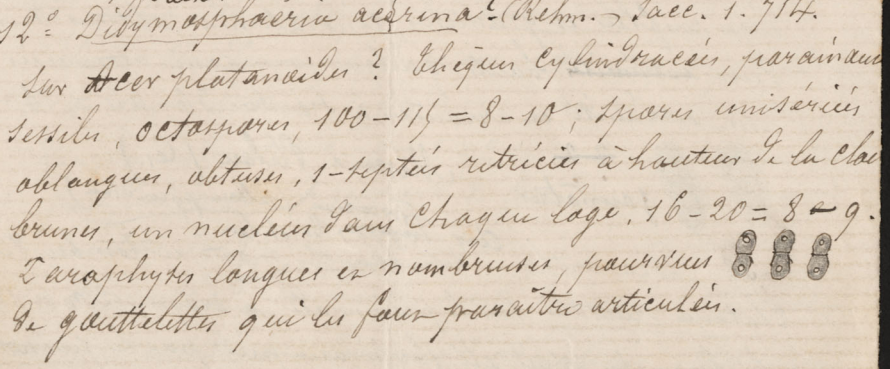 12° Didymosphaeria acerina? Rehm. Sacc. 1. 714.
sur Acer platanoides? Thèques cylindracées,
sessiles, octospores, 100-115 = 8-10; spores unisériées
oblongues, obtuses, 1-septées rétrécies à hauteur de la
brunes, un nucléus dans chaque loge. 16-20 = 8-9.
Paraphyses longues et nombreuses, pourvues
de gouttelettes qui les font paraître articulées.